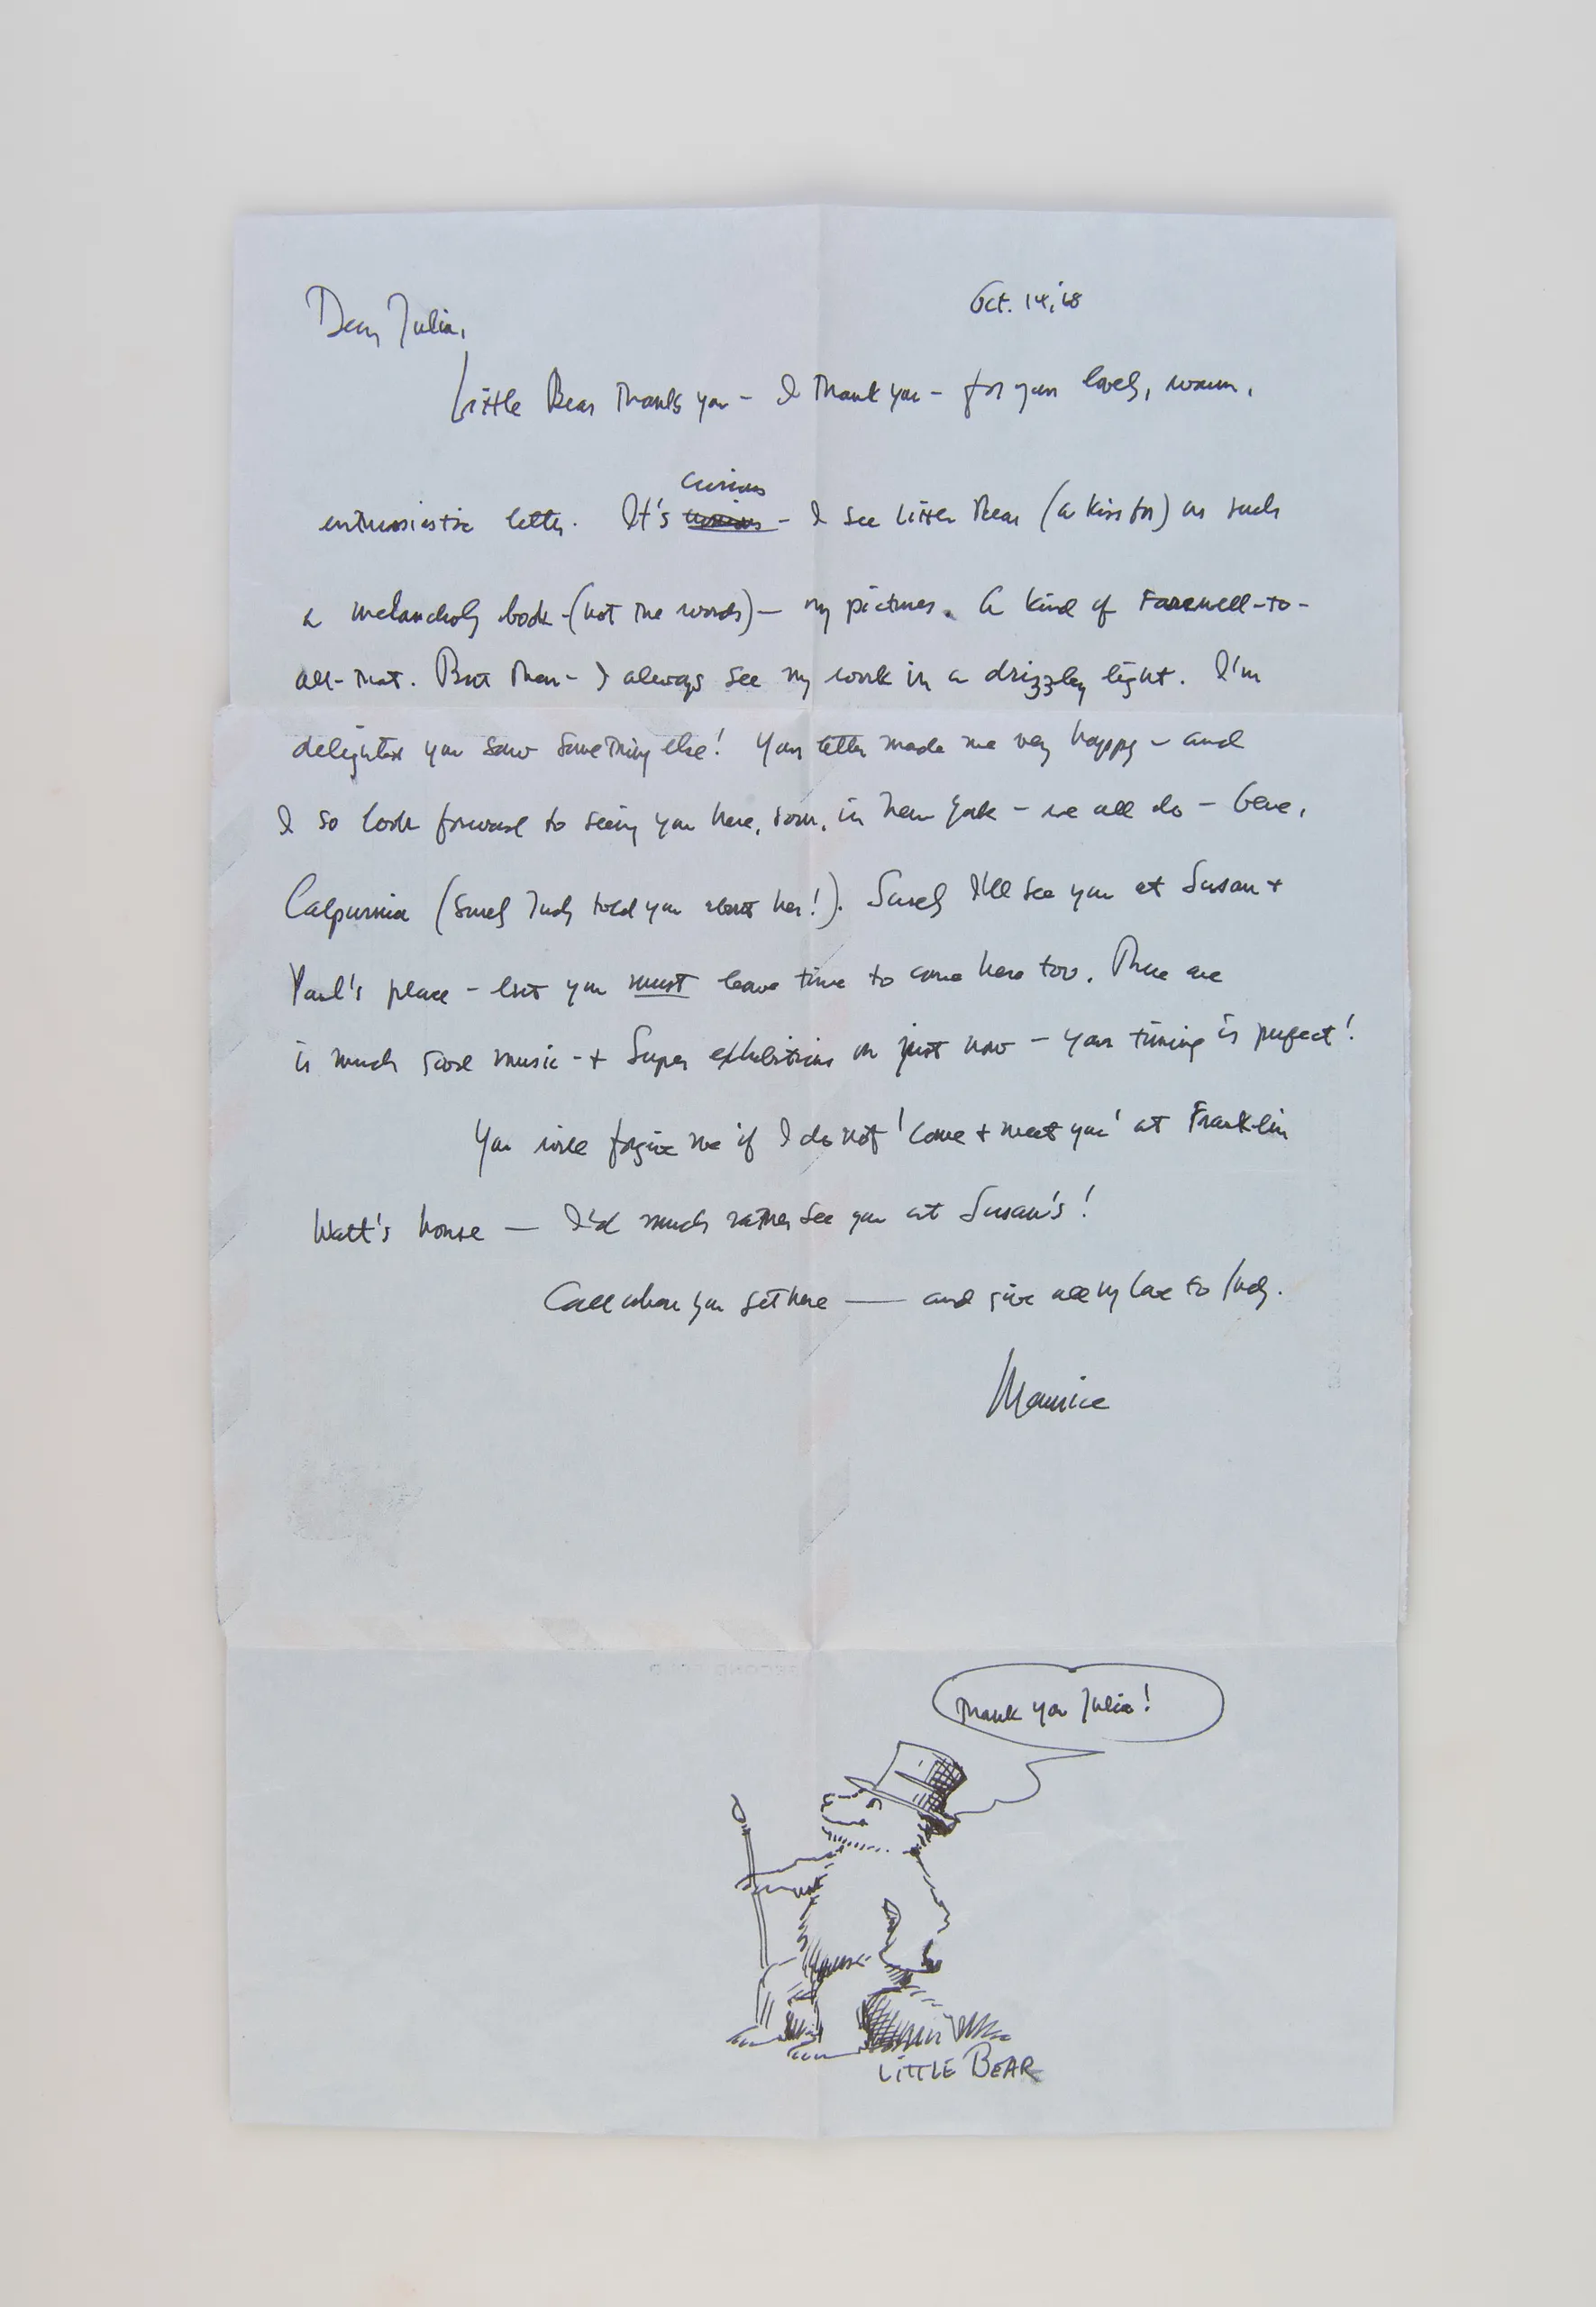 Oct. 14, '68
Dear Julia,
Little Bear thanks you – I thank you – for your lovely, warm,
enthusiastic letter. It's curious – I see Little Bear (a kiss for) as such
a melancholy book – (not the words) – my pictures. A kind of Farewell-to-
all-that. But then – I always see my work in a drizzly light. I'm
delighted you saw something else! Your letter made me very happy – and
I so look forward to seeing you here, soon, in New York – we all do – Gene,
Calpurnia (surely Judy told you about her!). Surely I'll see you at Susan +
Paul's place – but you must leave time to come here too. There are
is much good music – + super exhibitions on just now – your timing is perfect!
You will forgive me if I do not 'come + meet you' at Franklin
Watt's house — I'd much rather see you at Susan's!
Call when you get here — and give all my love to Judy.
Maurice
Thank you Julia!
LITTLE BEAR